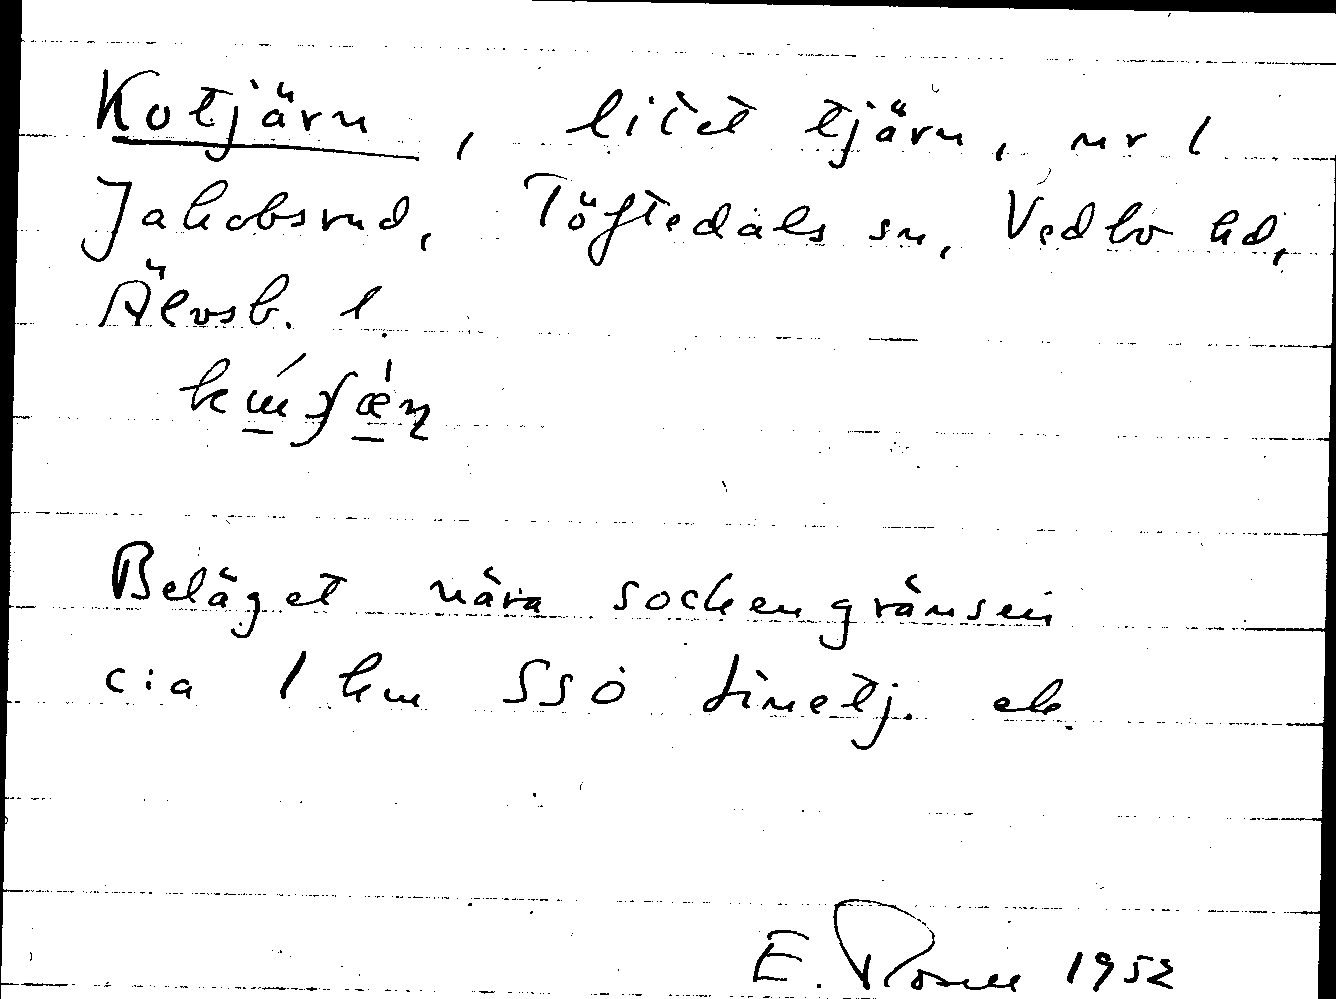 Kotjärn, litet tjärn, nr 1
Jakobsrud, Töftedals sn, Vedbo hd,
Älvsb. l.
Beläget nära sockengränsen
c:a 1 km SSÖ ek.
E. Rosell 1952